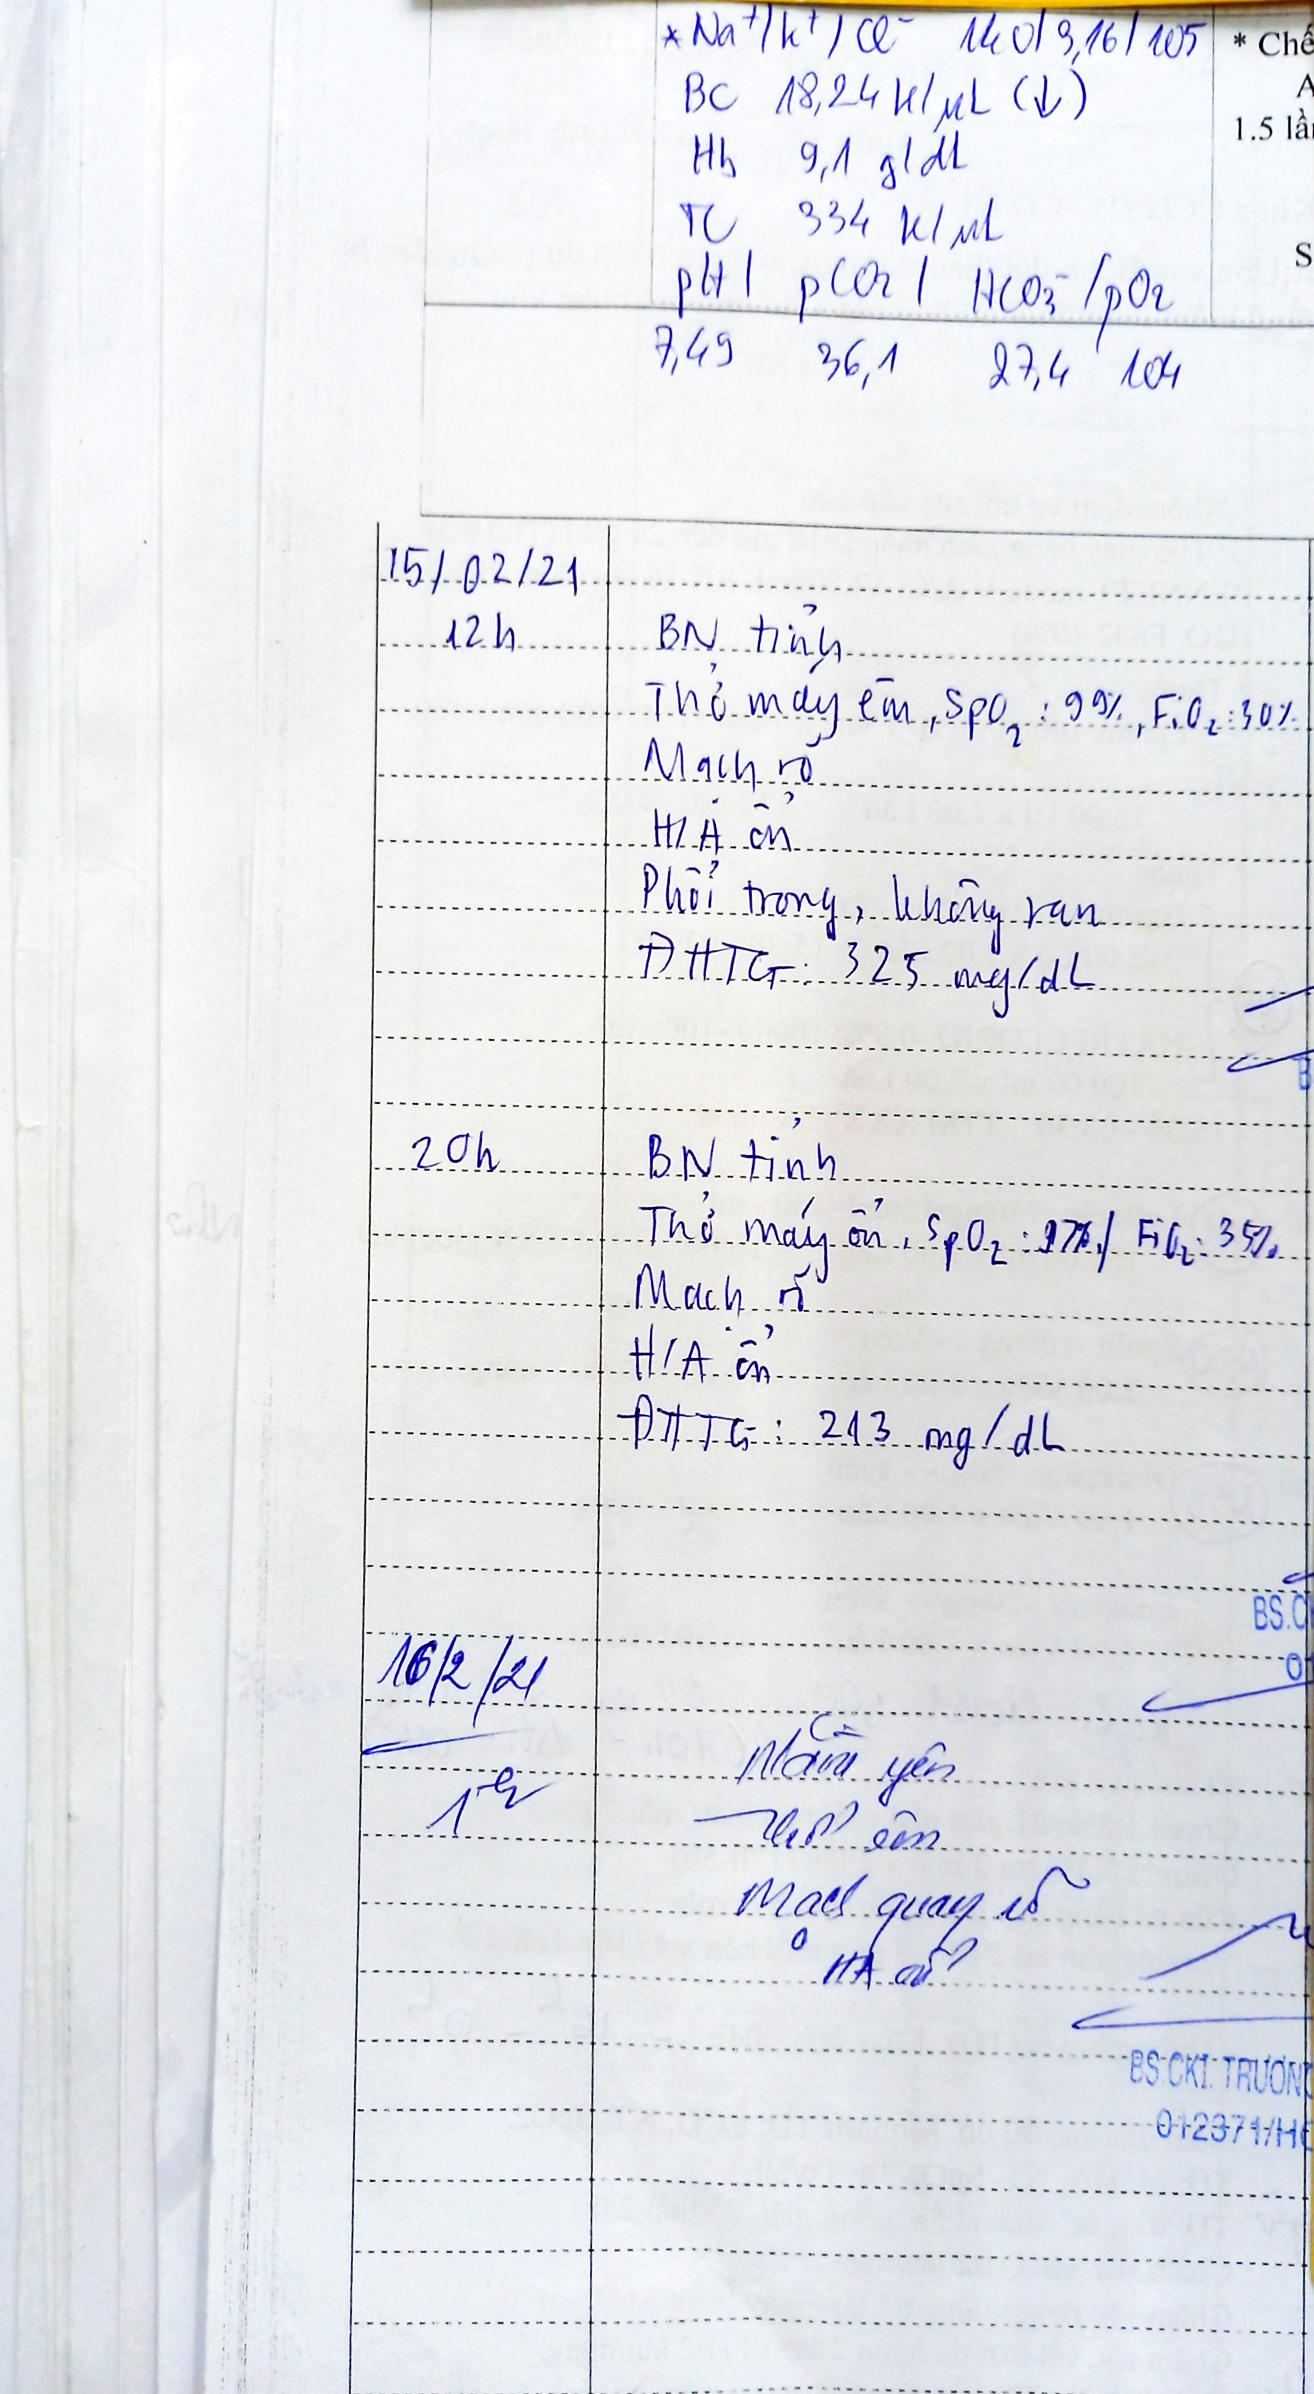 * Na⁺/K⁺/Cl⁻ 140/3,16/105
* Chế
BC 18,24 K/µL (↓)
A
Hb 9,1 g/dL
1.5 lần
TC 334 K/µL
S
pH / pCO2 / HCO3⁻ / pO2
7,49 36,1 27,4 104
15/02/21
12h BN tỉnh
Thở máy êm, SpO2: 99%, FiO2: 30%
Mạch rõ
H/A ổn
Phổi trong, không ran
ĐHTG: 325 mg/dL
20h BN tỉnh
Thở máy ổn, SpO2: 97% / FiO2: 35%
Mạch rõ
H/A ổn
ĐHTG: 213 mg/dL
BS.C
16/2/21
Nằm yên
Thở êm
Mạch quay rõ
HA ổn
BS.CKI. TRƯƠNG
012371/HC